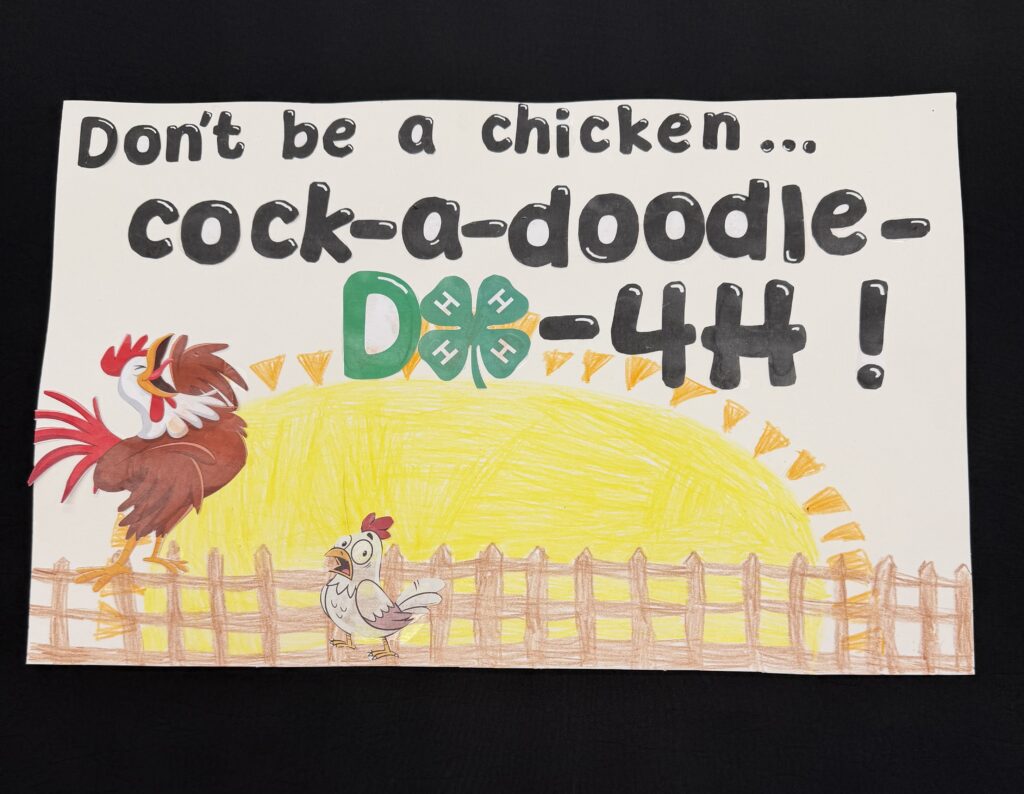 Don't be a chicken...
cock-a-doodle-
D🍀-4H!
H H
H H